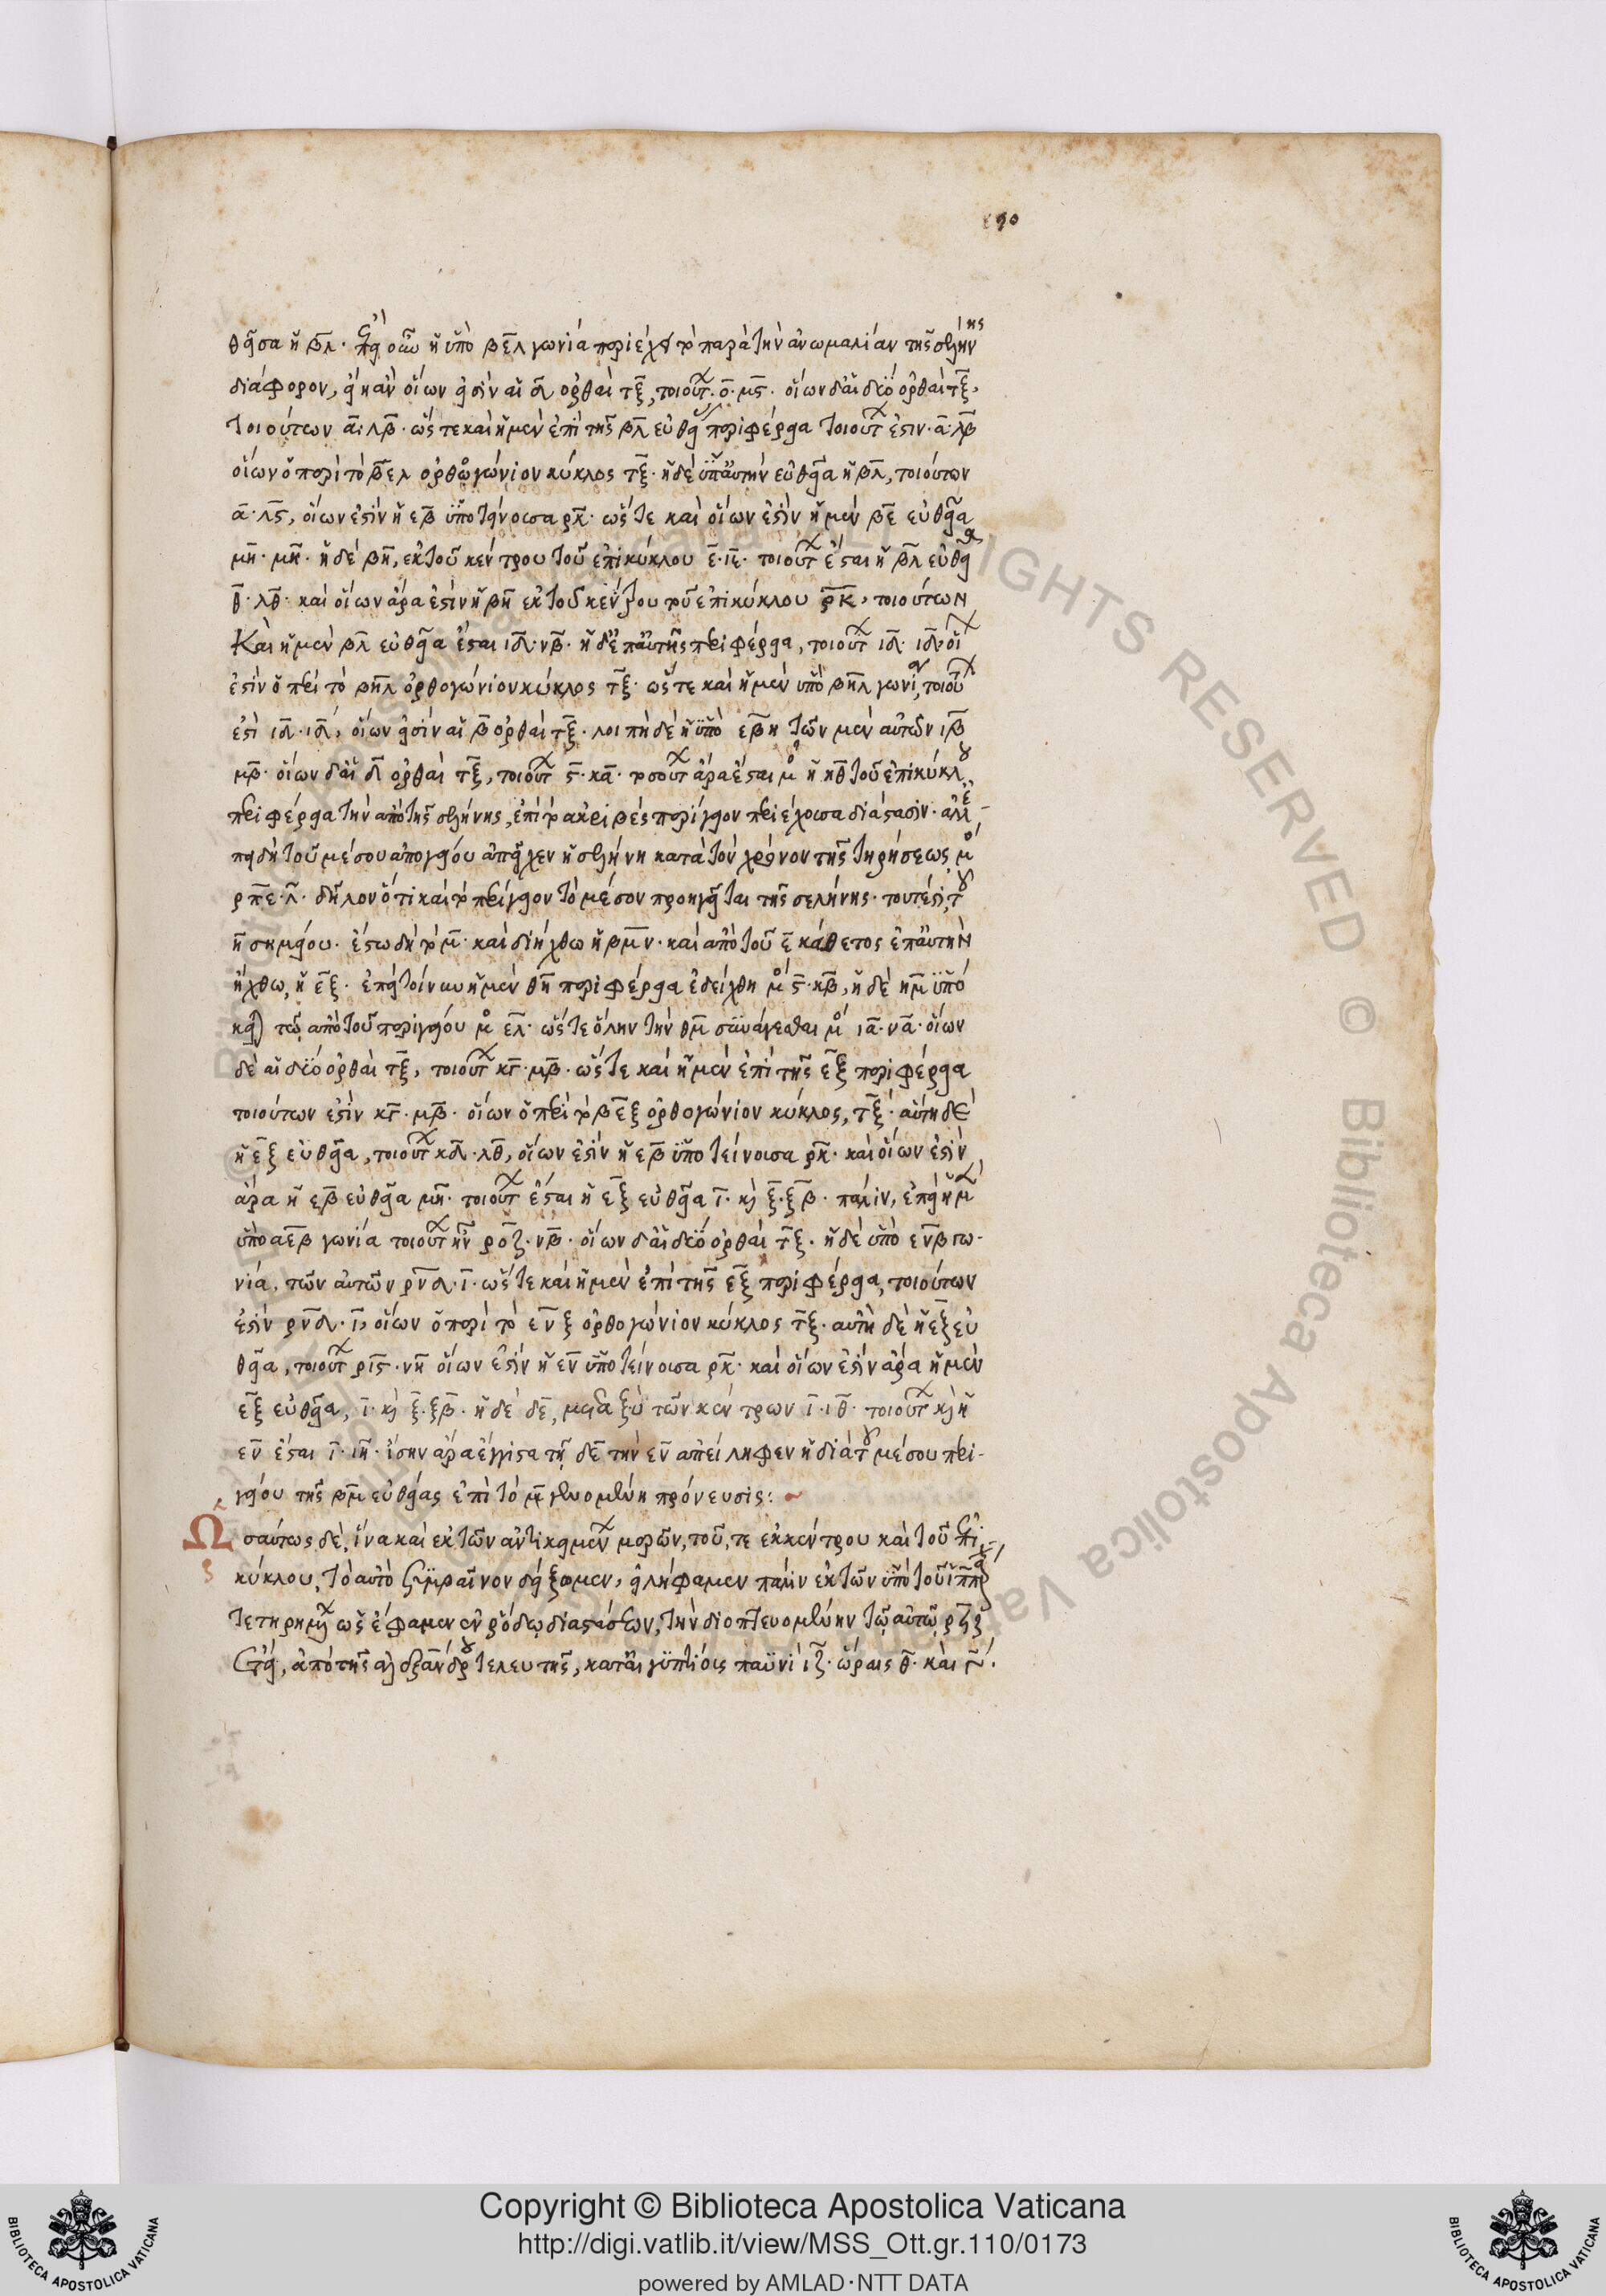 190
θεῖσα ἡ βλ· ἐπεὶ οὖν ἡ ὑπὸ βελ γωνία περιέχει τὸ παρὰ τὴν ἀνωμαλίαν τῆς σελήνης
διάφορον, εἴη ἂν οἵων εἰσὶν αἱ δ ὀρθαὶ τξ, τοιούτ ο·μς· οἵων δ' αἱ δύο ὀρθαὶ τξ,
τοιούτων α·λβ· ὥστε καὶ ἡ μὲν ἐπὶ τῆς βλ εὐθεί περιφέρεια τοιούτ ἐστιν α·λβ
οἵων ὁ περὶ τὸ βελ ὀρθογώνιον κύκλος τξ· ἡ δὲ ὑπ' αὐτὴν εὐθεῖα ἡ βλ, τοιούτων
α·λς, οἵων ἐστὶν ἡ εβ ὑποτείνουσα ρκ· ὥστε καὶ οἵων ἐστὶν ἡ μὲν βε εὐθεῖα
μη·μη· ἡ δὲ βη, ἐκ τοῦ κέντρου τοῦ ἐπικύκλου ε·ιε· τοιούτ ἔσται ἡ βλ εὐθεῖα
ο·λθ· καὶ οἵων ἄρα ἐστὶν ἡ βη ἐκ τοῦ κέντρου τοῦ ἐπικύκλου ρκ, τοιούτων
καὶ ἡ μὲν βλ εὐθεῖα ἔσται ιδ·νβ· ἡ δ' ἐπ' αὐτῆς περιφέρεια, τοιούτ ιδ·ιδ· οἵ
ἐστὶν ὁ περὶ τὸ βηλ ὀρθογώνιον κύκλος τξ· ὥστε καὶ ἡ μὲν ὑπὸ βηλ γωνί, τοιού
ἐστὶ ιδ·ιδ, οἵων εἰσὶν αἱ β ὀρθαὶ τξ· λοιπὴ δὲ ἡ ὑπὸ εβη τῶν μὲν αὐτῶν ιβ
μβ· οἵων δ' αἱ δ ὀρθαὶ τξ, τοιούτ ς·κα· τοσούτ ἄρα ἔσται μο ἡ ηθ τοῦ ἐπικύκλου
περιφέρεια τὴν ἀπὸ τῆς σελήνης, ἐπὶ τὸ ἀκριβὲς περίγειον περιέχουσα διάστασιν· ἀλλ' ἐ-
πειδὴ τοῦ μέσου ἀπογείου ἀπεῖχεν ἡ σελήνη κατὰ τὸν χρόνον τῆς τηρήσεως μο
ρπε·λ· δῆλον ὅτι καὶ τὸ περίγειον τὸ μέσον προηγεῖται τῆς σελήνης· τουτέστι, τοῦ
η σημείου. ἔστω δὴ τὸ μ· καὶ διήχθω ἡ βμν· καὶ ἀπὸ τοῦ ε κάθετος ἐπ' αὐτὴν
ἤχθω, ἡ εξ· ἐπεὶ τοίνυν ἡ μὲν θη περιφέρεια ἐδείχθη μο ς·κβ, ἡ δὲ ημ ὑπό
κει τῶ ἀπὸ τοῦ περιγείου μο ελ· ὥστε ὅλην τὴν θμ συνάγεσθαι μο ια·να· οἵων
δὲ αἱ δύο ὀρθαὶ τξ, τοιούτ κγ·μβ· ὥστε καὶ ἡ μὲν ἐπὶ τῆς εξ περιφέρεια
τοιούτων ἐστὶν κγ·μβ· οἵων ὁ περὶ τὸ βεξ ὀρθογώνιον κύκλος, τξ· αὐτὴ δὲ
ἡ εξ εὐθεῖα, τοιούτ κδ·λθ, οἵων ἐστὶν ἡ εβ ὑποτείνουσα ρκ· καὶ οἵων ἐστὶν
ἄρα ἡ εβ εὐθεῖα μη· τοιούτ ἔσται ἡ εξ εὐθεῖα ι· κ ξ·ξβ· πάλιν, ἐπεὶ ἡ μ
ὑπὸ αεβ γωνία τοιούτ ἦν ροζ·νβ· οἵων δ' αἱ δύο ὀρθαὶ τξ· ἡ δὲ ὑπὸ ενβ γω-
νία, τῶν αὐτῶν ρνδ·ι· ὥστε καὶ ἡ μὲν ἐπὶ τῆς εξ περιφέρεια, τοιούτων
ἐστὶν ρνδ·ι, οἵων ὁ περὶ τὸ ενξ ὀρθογώνιον κύκλος τξ· αὐτὴ δὲ ἡ εξ εὐ
θεῖα, τοιούτ ρις·νη οἵων ἐστὶν ἡ εν ὑποτείνουσα ρκ· καὶ οἵων ἐστὶν ἄρα ἡ μὲν
εξ εὐθεῖα, ι· κ ξ·ξβ· ἡ δὲ δε, μεταξὺ τῶν κέντρων ι·ιθ· τοιούτ κ ἡ
εν ἔσται ι·ιη· ἴσην ἄρα ἔγγιστα τῇ δε τὴν εν ἀπείληφεν ἡ διὰ τοῦ μέσου περι-
γείου τῆς βμ εὐθείας ἐπὶ τὸ μ γινομένη πρόνευσις:
Ὡσαύτως δὲ, ἵνα καὶ ἐκ τῶν ἀντικειμένων μερῶν, τοῦ, τε ἐκκέντρου καὶ τοῦ ἐπι-
κύκλου, τὸ αὐτὸ συμβαῖνον δείξωμεν, εἰλήφαμεν πάλιν ἐκ τῶν ὑπὸ τοῦ ἱππάρ
τετηρημ ὡς ἔφαμεν ἐν ῥόδω διαστάσεων, τὴν διοπτευομένην τῶ αὐτῶ ρζζ
ἔτει, ἀπὸ τῆς ἀλεξάνδρου τελευτῆς, κατ' αἰγυπτίοις παϋνὶ ιζ· ὥραις θ· καὶ γ.
Copyright © Biblioteca Apostolica Vaticana
http://digi.vatlib.it/view/MSS_Ott.gr.110/0173
powered by AMLAD·NTT DATA